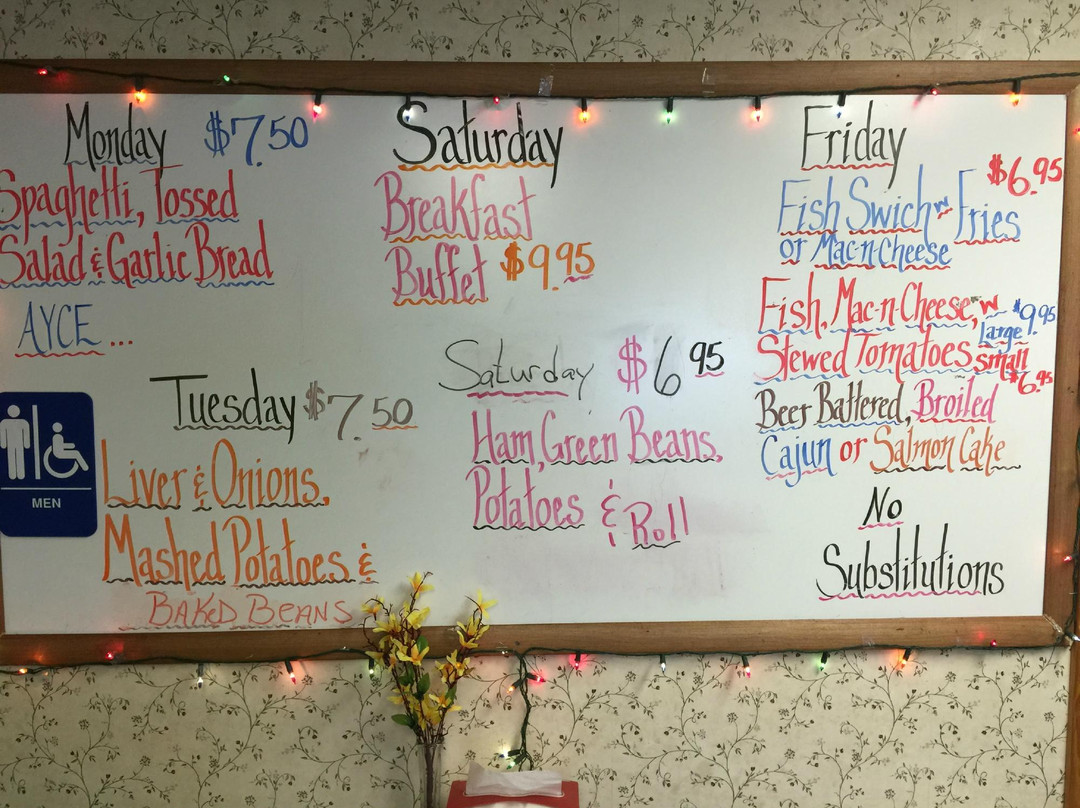 Monday $7.50
Spaghetti, Tossed
Salad & Garlic Bread
AYCE...
Tuesday $7.50
Liver & Onions,
Mashed Potatoes &
BAKED BEANS
MEN
Saturday
Breakfast
Buffet $9.95
Saturday $6.95
Ham, Green Beans,
Potatoes & Roll
Friday
$6.95
Fish Swich w Fries
or Mac-n-Cheese
Fish, Mac-n-Cheese, w
Large $9.95
Stewed Tomatoes small
$6.95
Beer Battered, Broiled
Cajun or Salmon Cake
No
Substitutions